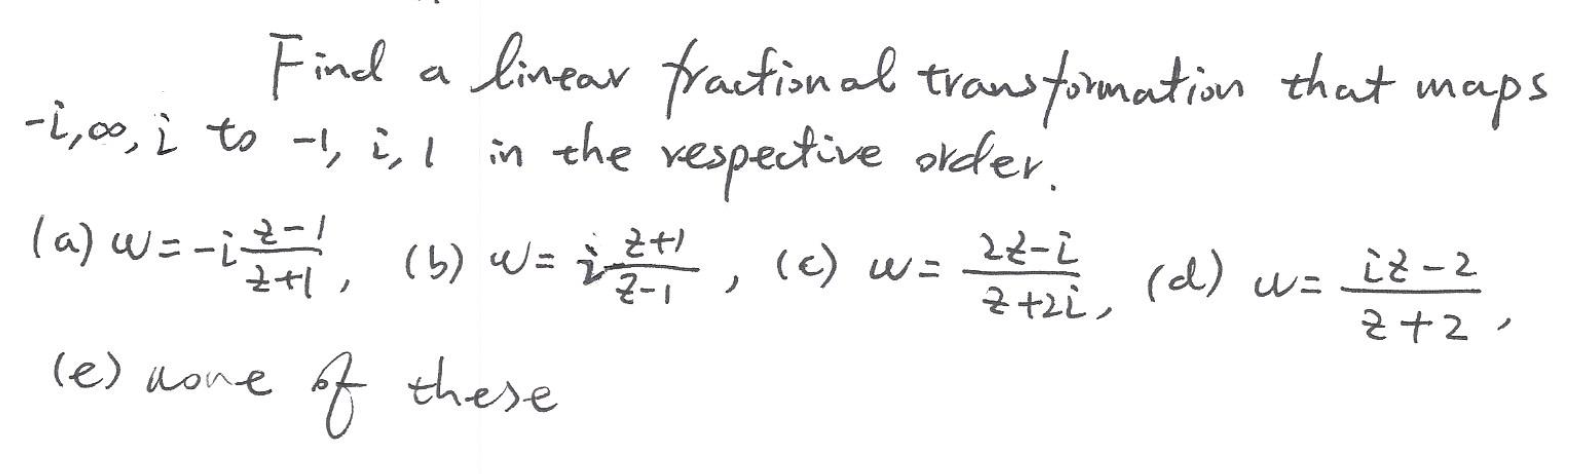 Find a linear fractional transformation that maps
-i, ∞, i to -1, i, 1 in the respective order.
(a) w = -i \frac{z-1}{z+1}, (b) w = i \frac{z+1}{z-1}, (c) w = \frac{2z-i}{z+2i}, (d) w = \frac{iz-2}{z+2},
(e) none of these